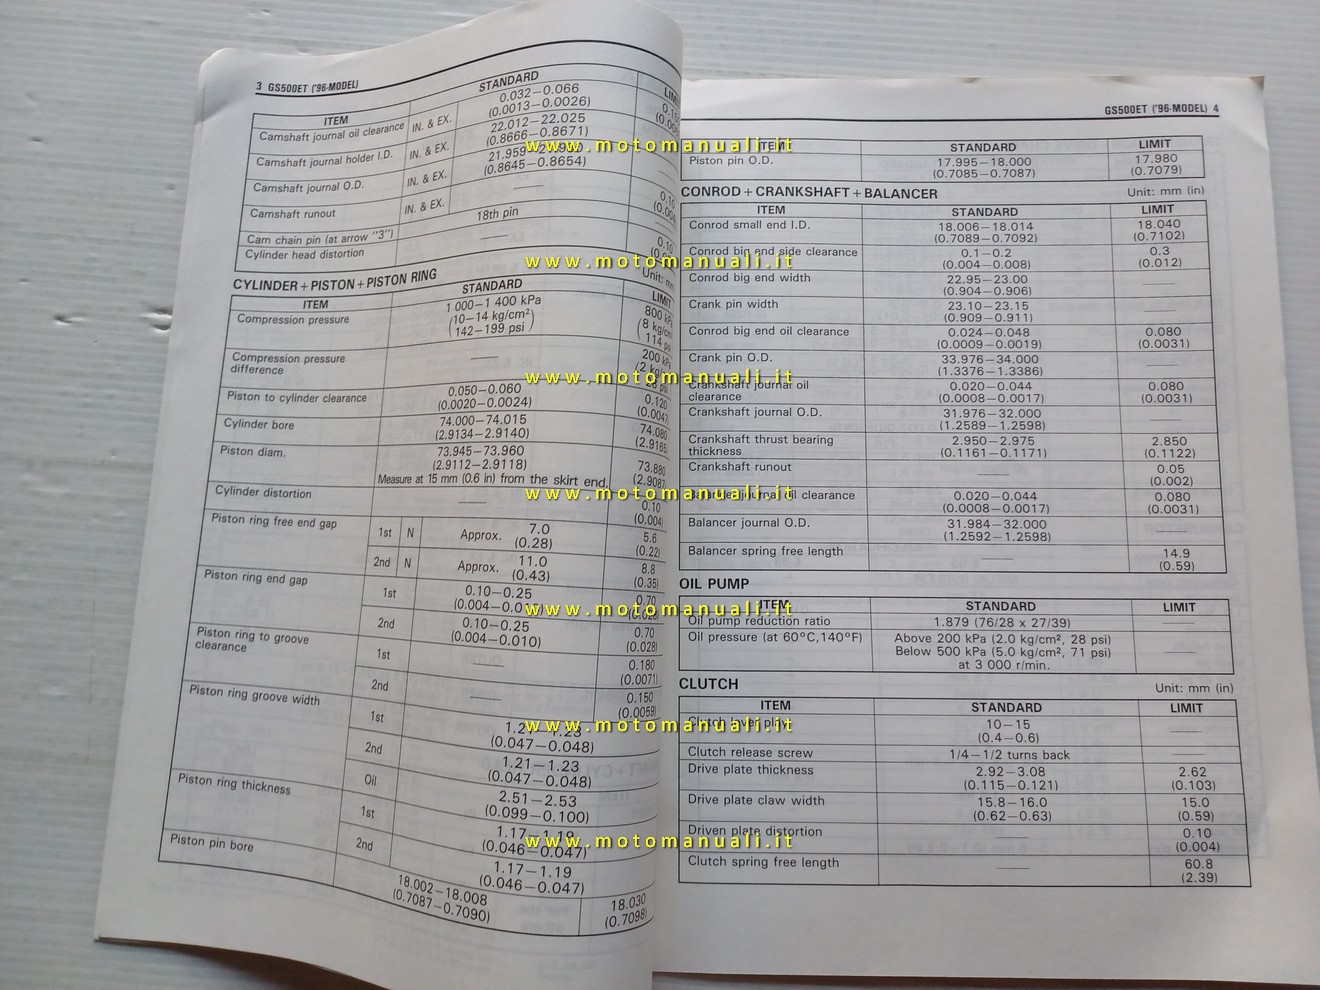 3 GS500ET ('96-MODEL)
ITEM STANDARD
Camshaft journal oil clearance IN. & EX. 0.032–0.066
(0.0013–0.0026)
Camshaft journal holder I.D. IN. & EX. 22.012–22.025
(0.8666–0.8671)
Camshaft journal O.D. IN. & EX.
(0.8645–0.8654)
Camshaft runout IN. & EX. —— 0.10
Cam chain pin (at arrow "3") 18th pin
Cylinder head distortion —— 0.10
CYLINDER+PISTON+PISTON RING Unit: mm
ITEM STANDARD LIMIT
Compression pressure 1 000–1 400 kPa 800
(10–14 kg/cm² 8
142–199 psi) 114
Compression pressure difference —— 200
(2
Piston to cylinder clearance 0.050–0.060 0.120
(0.0020–0.0024) (0.0047
Cylinder bore 74.000–74.015 74.080
(2.9134–2.9140)
Piston diam. 73.945–73.960 73.880
(2.9112–2.9118)
Measure at 15 mm (0.6 in) from the skirt end.
Cylinder distortion —— 0.10
(0.004)
Piston ring free end gap 1st N Approx. 7.0 5.6
(0.28) (0.22)
2nd N Approx. 11.0 8.8
(0.43) (0.35)
Piston ring end gap 1st 0.10–0.25 0.70
2nd 0.10–0.25 0.70
(0.004–0.010) (0.028)
Piston ring to groove clearance 1st —— 0.180
(0.0071)
2nd —— 0.150
(0.0059)
Piston ring groove width 1st
(0.047–0.048)
2nd 1.21–1.23
(0.047–0.048)
Oil 2.51–2.53
(0.099–0.100)
Piston ring thickness 1st 1.17–1.19
(0.046–0.047)
2nd 1.17–1.19
(0.046–0.047)
Piston pin bore 18.002–18.008 18.030
(0.7087–0.7090) (0.7098)
GS500ET ('96-MODEL) 4
ITEM STANDARD LIMIT
Piston pin O.D. 17.995–18.000 17.980
(0.7085–0.7087) (0.7079)
CONROD+CRANKSHAFT+BALANCER Unit: mm (in)
ITEM STANDARD LIMIT
Conrod small end I.D. 18.006–18.014 18.040
(0.7089–0.7092) (0.7102)
Conrod big end side clearance 0.1–0.2 0.3
(0.004–0.008) (0.012)
Conrod big end width 22.95–23.00 ——
(0.904–0.906)
Crank pin width 23.10–23.15 ——
(0.909–0.911)
Conrod big end oil clearance 0.024–0.048 0.080
(0.0009–0.0019) (0.0031)
Crank pin O.D. 33.976–34.000 ——
(1.3376–1.3386)
Crankshaft journal oil clearance 0.020–0.044 0.080
(0.0008–0.0017) (0.0031)
Crankshaft journal O.D. 31.976–32.000 ——
(1.2589–1.2598)
Crankshaft thrust bearing thickness 2.950–2.975 2.850
(0.1161–0.1171) (0.1122)
Crankshaft runout —— 0.05
(0.002)
Balancer journal oil clearance 0.020–0.044 0.080
(0.0008–0.0017) (0.0031)
Balancer journal O.D. 31.984–32.000 ——
(1.2592–1.2598)
Balancer spring free length —— 14.9
(0.59)
OIL PUMP
ITEM STANDARD LIMIT
Oil pump reduction ratio 1.879 (76/28 x 27/39)
Oil pressure (at 60°C,140°F) Above 200 kPa (2.0 kg/cm², 28 psi) ——
Below 500 kPa (5.0 kg/cm², 71 psi)
at 3 000 r/min.
CLUTCH Unit: mm (in)
ITEM STANDARD LIMIT
Clutch lever play 10–15 ——
(0.4–0.6)
Clutch release screw 1/4–1/2 turns back ——
Drive plate thickness 2.92–3.08 2.62
(0.115–0.121) (0.103)
Drive plate claw width 15.8–16.0 15.0
(0.62–0.63) (0.59)
Driven plate distortion —— 0.10
(0.004)
Clutch spring free length —— 60.8
(2.39)
www.motomanuali.it
www.motomanuali.it
www.motomanuali.it
www.motomanuali.it
www.motomanuali.it
www.motomanuali.it
www.motomanuali.it